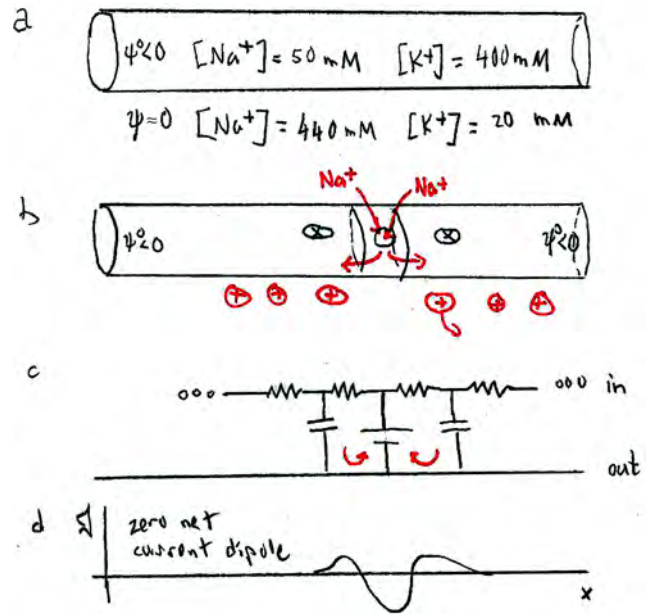 a
ψ⁰<0 [Na+]=50 mM [K+]=400 mM
ψ≈0 [Na+]=440 mM [K+]=20 mM
Na+ Na+
b
ψ⁰<0 ψ⁰<0
+ + + + + +
c
ooo ooo in
out
d zero net
current dipole
x